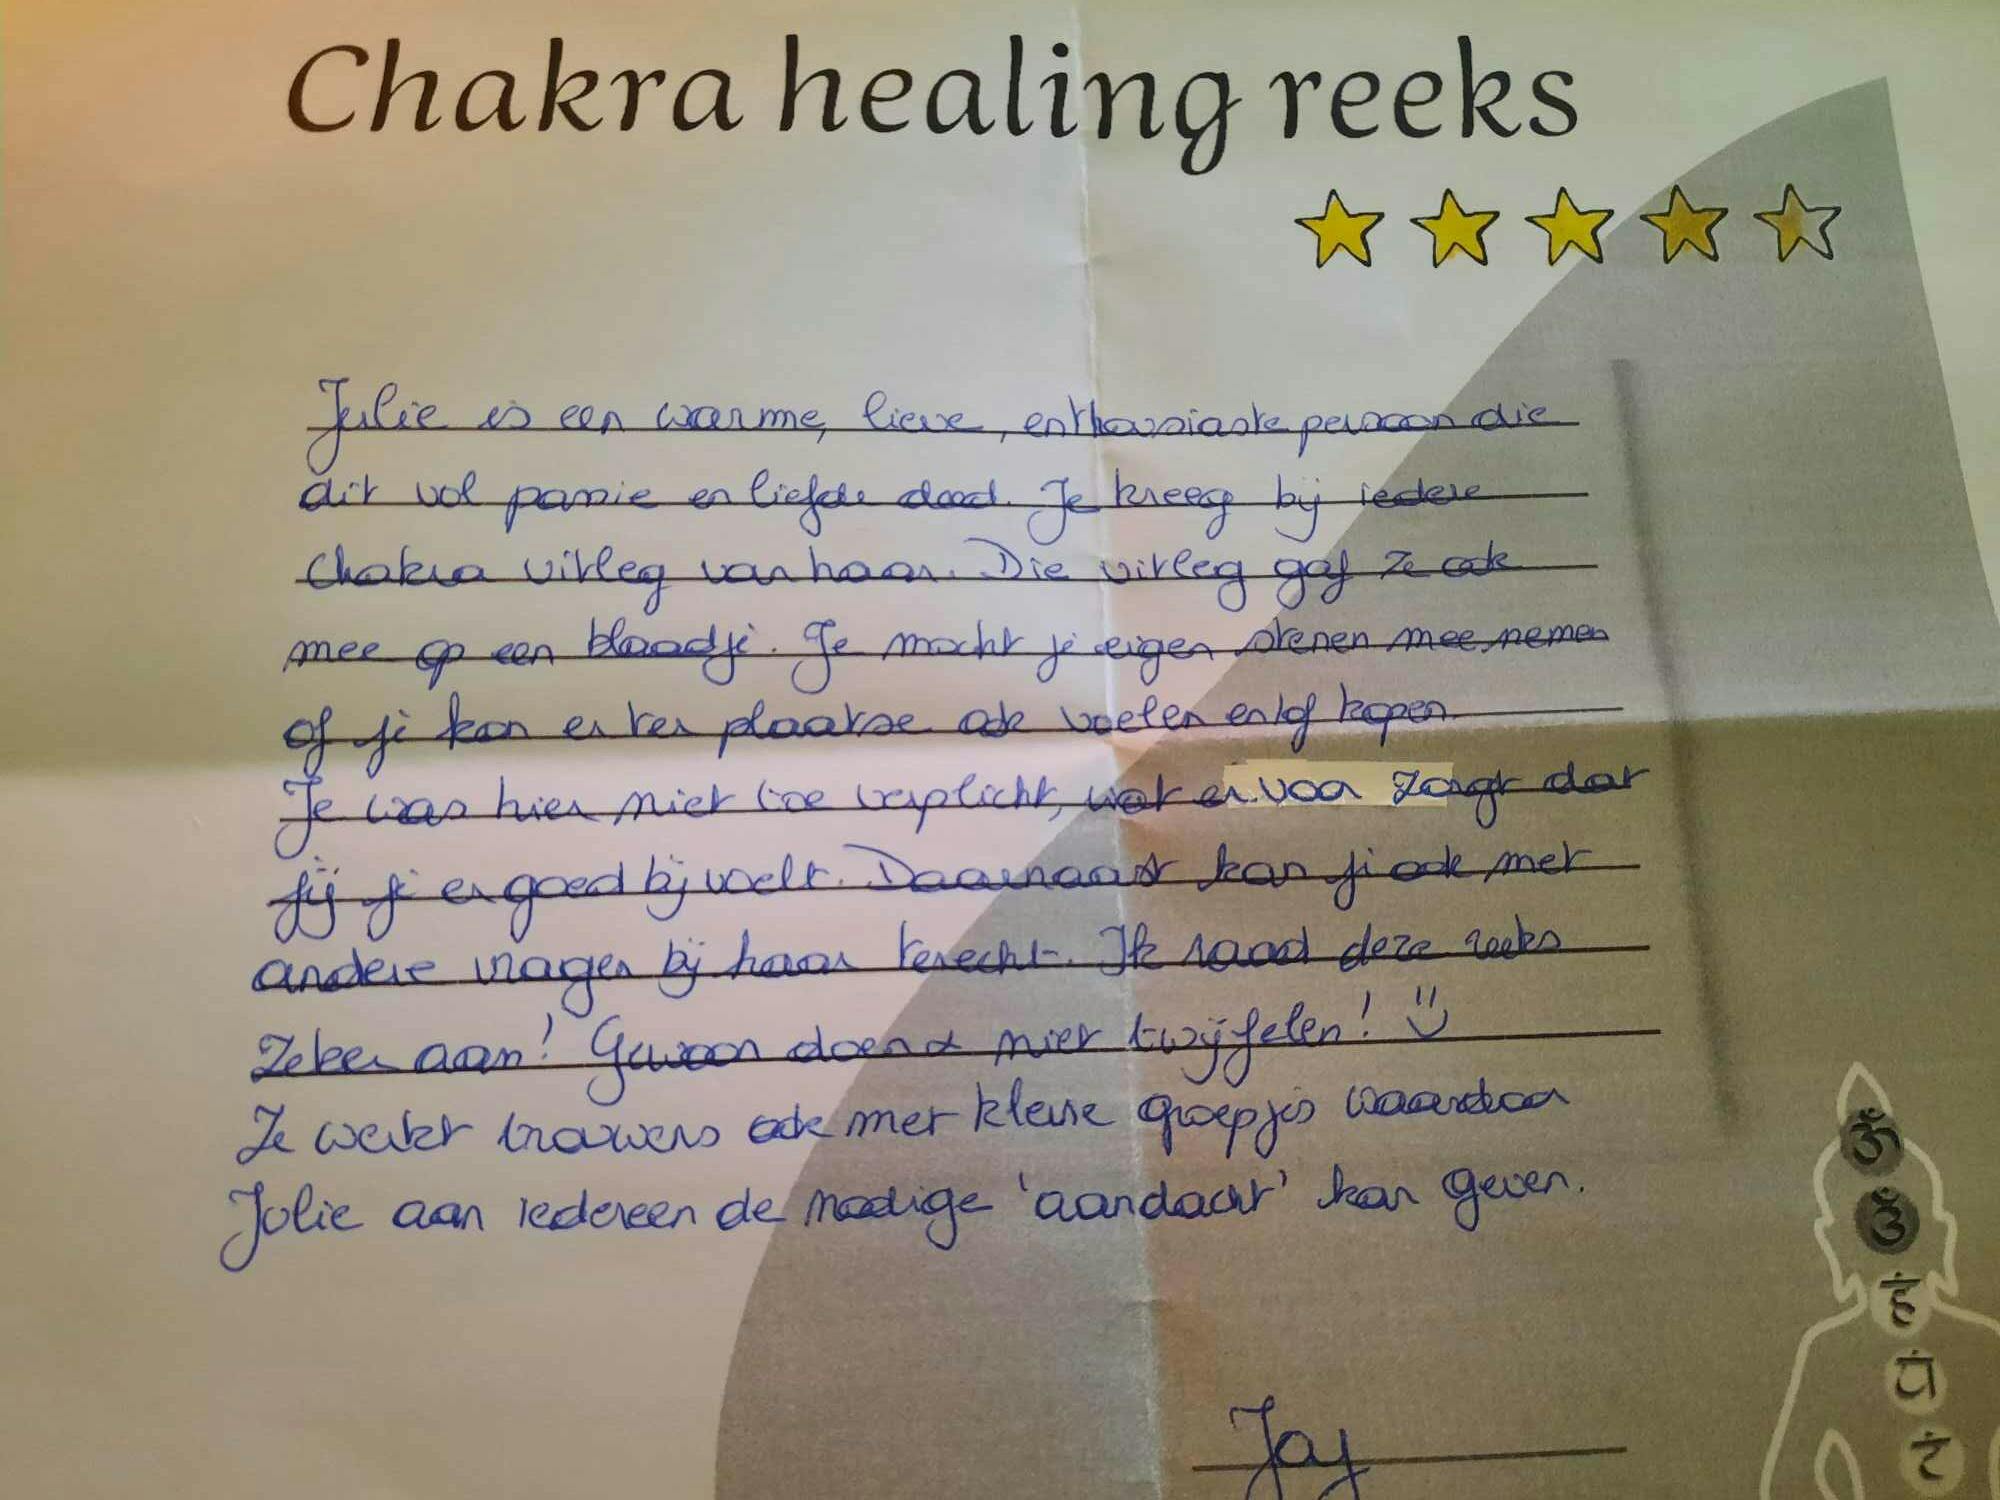 Chakra healing reeks
Julie is een warme, lieve, enthousiaste persoon die
dit vol passie en liefde deed. Je kreeg bij iedere
chakra uitleg van haar. Die uitleg gaf ze ook
mee op een blaadje. Je mocht je eigen stenen mee nemen
of je kon er ter plaatse ook voelen en/of kopen.
Je was hier niet toe verplicht, wat er voor zorgt dat
jij je er goed bij voelt. Daarnaast kan je ook met
andere vragen bij haar terecht. Ik raad deze reeks
zeker aan! Gewoon doen & niet twijfelen!
Ze werkt trouwens ook met kleine groepjes waardoor
Jolie aan iedereen de nodige 'aandacht' kan geven.
Jay
ॐ
ॐ
हं